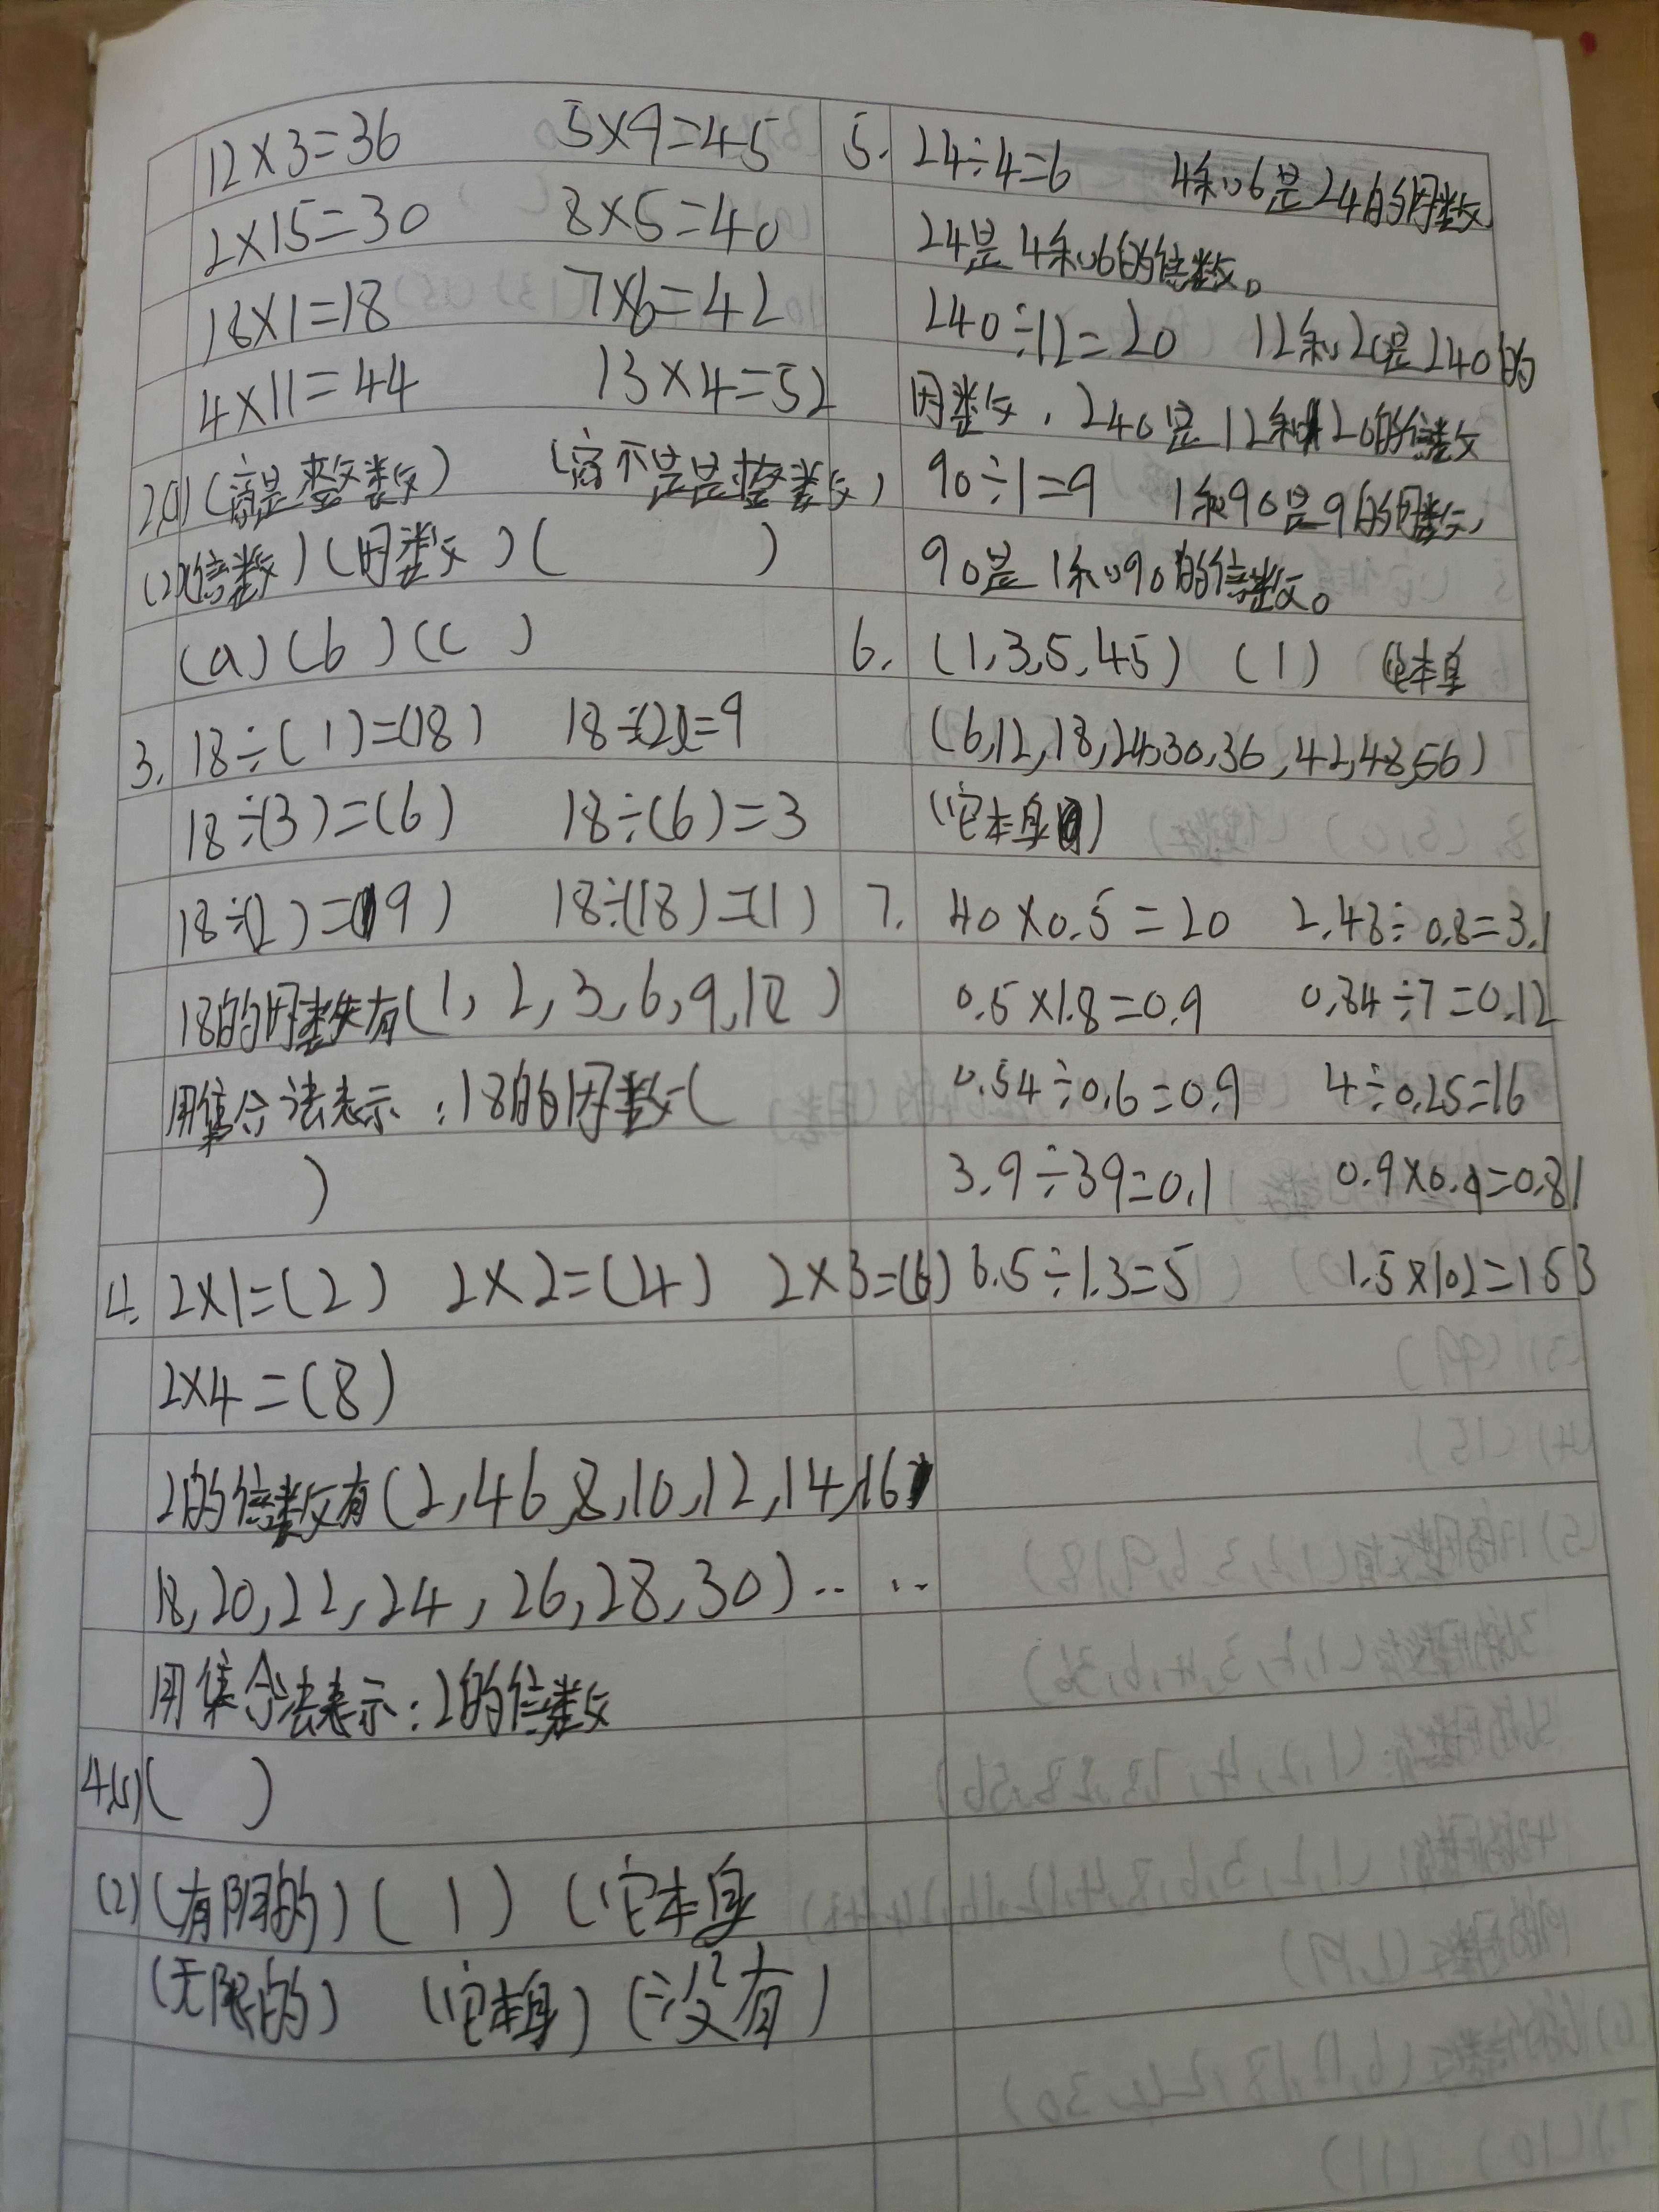 12×3=36 5×9=45
2×15=30 8×5=40
18×1=18 7×6=42
4×11=44 13×4=52
2.(1)(商是整数) (商不是是整数)
(2)(倍数)(因数)( )
(a)(b)(c )
3. 18÷(1)=(18) 18÷(2)=9
18÷(3)=(6) 18÷(6)=3
18÷(2)=(9) 18÷(18)=(1)
18的因数有(1, 2, 3, 6, 9, 18)
用集合法表示:18的因数(
)
4. 2×1=(2) 2×2=(4) 2×3=(6)
2×4=(8)
2的倍数有(2,4 6,8,10,12,14,16
18,20,22,24,26,28,30)‥ ‥
用集合法表示:2的倍数
4(1)( )
(2)(有限的)(1)(它本身
(无限的) (它本身)(没有)
5. 24÷4=6 4和6是24的因数
24是4和6的倍数。
240÷12=20 12和20是240的
因数,240是12和20的倍数
90÷1=9 1和90是9的因数,
90是1和90的倍数。
6. (1,3,5,45) (1) 它本身
(6,12,18,24,30,36,42,48,56)
(它本身)
7. 40×0.5=20 2.48÷0.8=3.1
0.5×1.8=0.9 0.84÷7=0.12
0.54÷0.6=0.9 4÷0.25=16
3.9÷39=0.1 0.9×0.9=0.81
6.5÷1.3=5 1.5×102=153